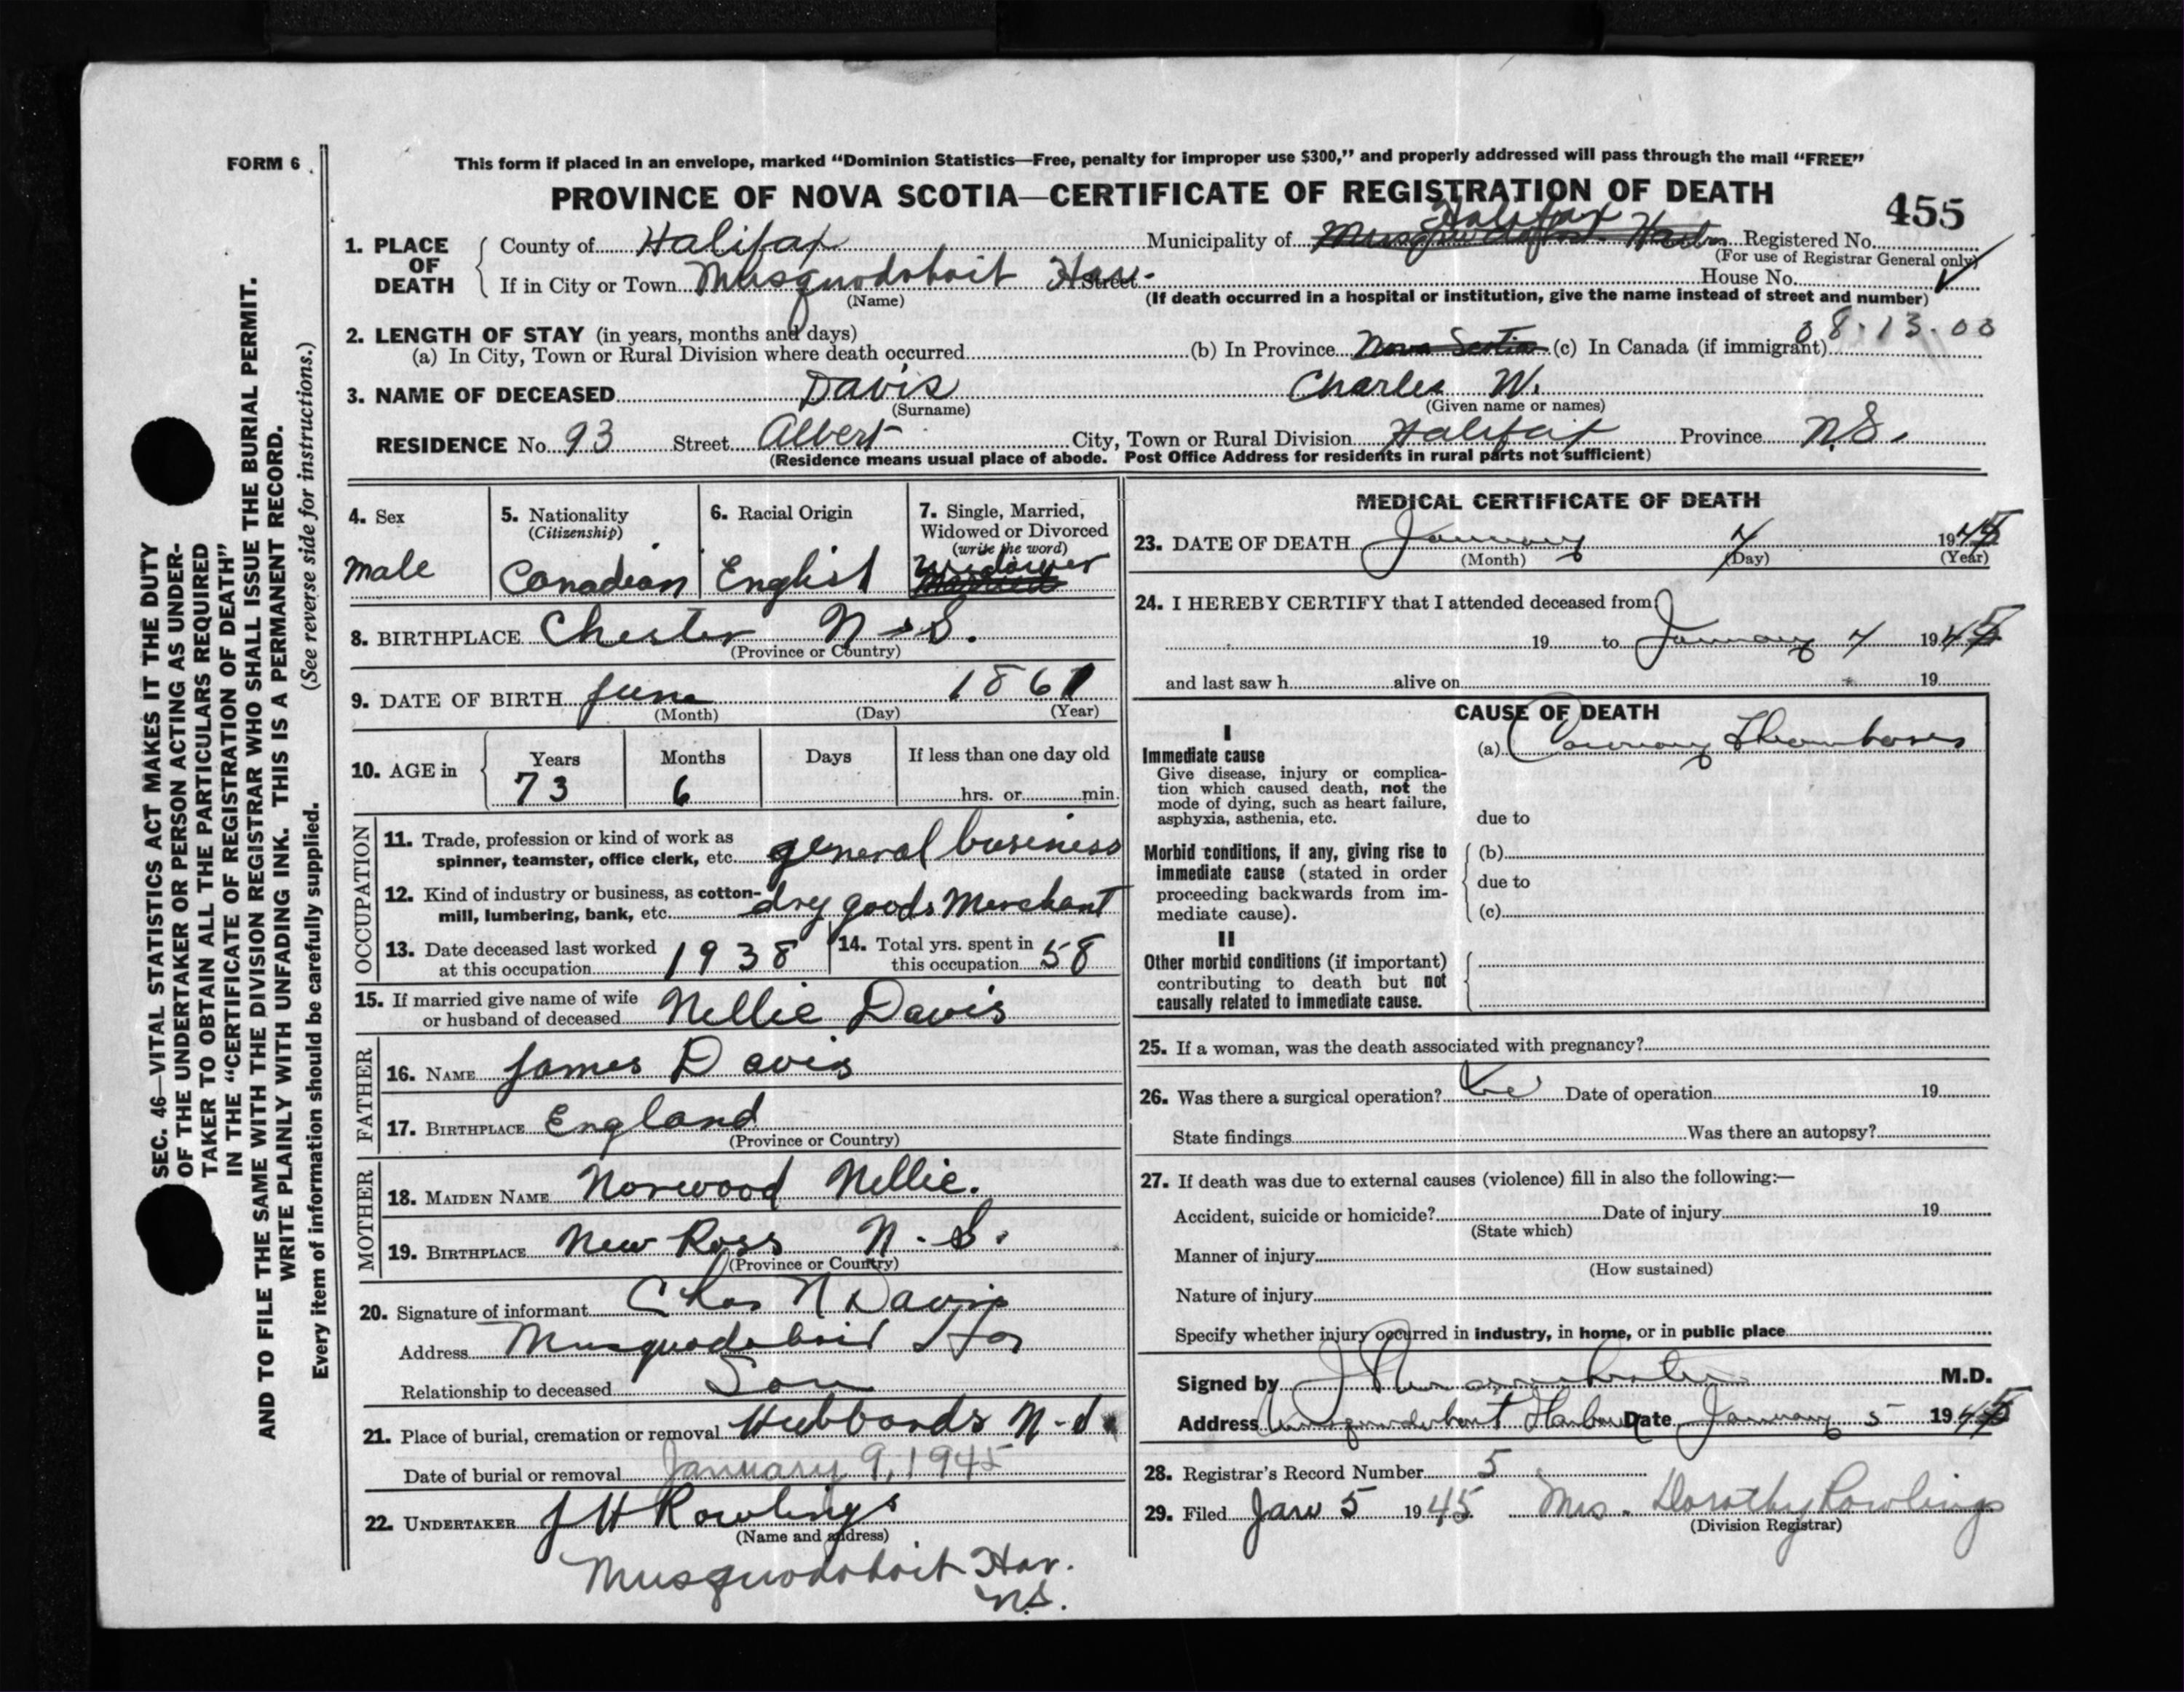 FORM 6
This form if placed in an envelope, marked "Dominion Statistics—Free, penalty for improper use $300," and properly addressed will pass through the mail "FREE"
PROVINCE OF NOVA SCOTIA—CERTIFICATE OF REGISTRATION OF DEATH
455
1. PLACE OF DEATH
County of Halifax Municipality of Halifax Registered No.
(For use of Registrar General only)
If in City or Town Musquodoboit Har. Street House No.
(Name) (If death occurred in a hospital or institution, give the name instead of street and number)
2. LENGTH OF STAY (in years, months and days)
(a) In City, Town or Rural Division where death occurred (b) In Province Nova Scotia (c) In Canada (if immigrant)
08.13.00
3. NAME OF DECEASED Davis Charles W.
(Surname) (Given name or names)
RESIDENCE No. 93 Street Albert City, Town or Rural Division Halifax Province N.S.
(Residence means usual place of abode. Post Office Address for residents in rural parts not sufficient)
4. Sex
male
5. Nationality
(Citizenship)
Canadian
6. Racial Origin
English
7. Single, Married,
Widowed or Divorced
(write the word)
Widower
Married
8. BIRTHPLACE Chester N.S.
(Province or Country)
9. DATE OF BIRTH June 1861
(Month) (Day) (Year)
10. AGE in
Years Months Days If less than one day old
73 6 hrs. or min.
OCCUPATION
11. Trade, profession or kind of work as
spinner, teamster, office clerk, etc. general business
12. Kind of industry or business, as cotton-
mill, lumbering, bank, etc. dry goods Merchant
13. Date deceased last worked
at this occupation 1938
14. Total yrs. spent in
this occupation 58
15. If married give name of wife
or husband of deceased Nellie Davis
FATHER
16. NAME James Davis
17. BIRTHPLACE England
(Province or Country)
MOTHER
18. MAIDEN NAME Norwood Nellie.
19. BIRTHPLACE New Ross N.S.
(Province or Country)
20. Signature of informant Chas N Davis
Address Musquodoboit Har
Relationship to deceased Son
21. Place of burial, cremation or removal Hubbards N.S.
Date of burial or removal January 9, 1945
22. UNDERTAKER J H Rowlings
(Name and address)
Musquodoboit Har.
N.S.
MEDICAL CERTIFICATE OF DEATH
23. DATE OF DEATH January 4 1945
(Month) (Day) (Year)
24. I HEREBY CERTIFY that I attended deceased from
19 to January 4 1945
and last saw h alive on 19
CAUSE OF DEATH
I
Immediate cause
Give disease, injury or complica-
tion which caused death, not the
mode of dying, such as heart failure,
asphyxia, asthenia, etc.
(a) Coronary Thrombosis
due to
Morbid conditions, if any, giving rise to
immediate cause (stated in order
proceeding backwards from im-
mediate cause).
(b)
due to
(c)
II
Other morbid conditions (if important)
contributing to death but not
causally related to immediate cause.
25. If a woman, was the death associated with pregnancy?
26. Was there a surgical operation? Date of operation 19
State findings Was there an autopsy?
27. If death was due to external causes (violence) fill in also the following:—
Accident, suicide or homicide? Date of injury 19
(State which)
Manner of injury
(How sustained)
Nature of injury
Specify whether injury occurred in industry, in home, or in public place
Signed by M.D.
Address Musquodoboit Harbour Date January 5 1945
28. Registrar's Record Number 5
29. Filed Jan 5 1945 Mrs. Dorothy Rowlings
(Division Registrar)
SEC. 46—VITAL STATISTICS ACT MAKES IT THE DUTY
OF THE UNDERTAKER OR PERSON ACTING AS UNDER-
TAKER TO OBTAIN ALL THE PARTICULARS REQUIRED
IN THE "CERTIFICATE OF REGISTRATION OF DEATH"
AND TO FILE THE SAME WITH THE DIVISION REGISTRAR WHO SHALL ISSUE THE BURIAL PERMIT.
WRITE PLAINLY WITH UNFADING INK. THIS IS A PERMANENT RECORD.
(See reverse side for instructions.)
Every item of information should be carefully supplied.